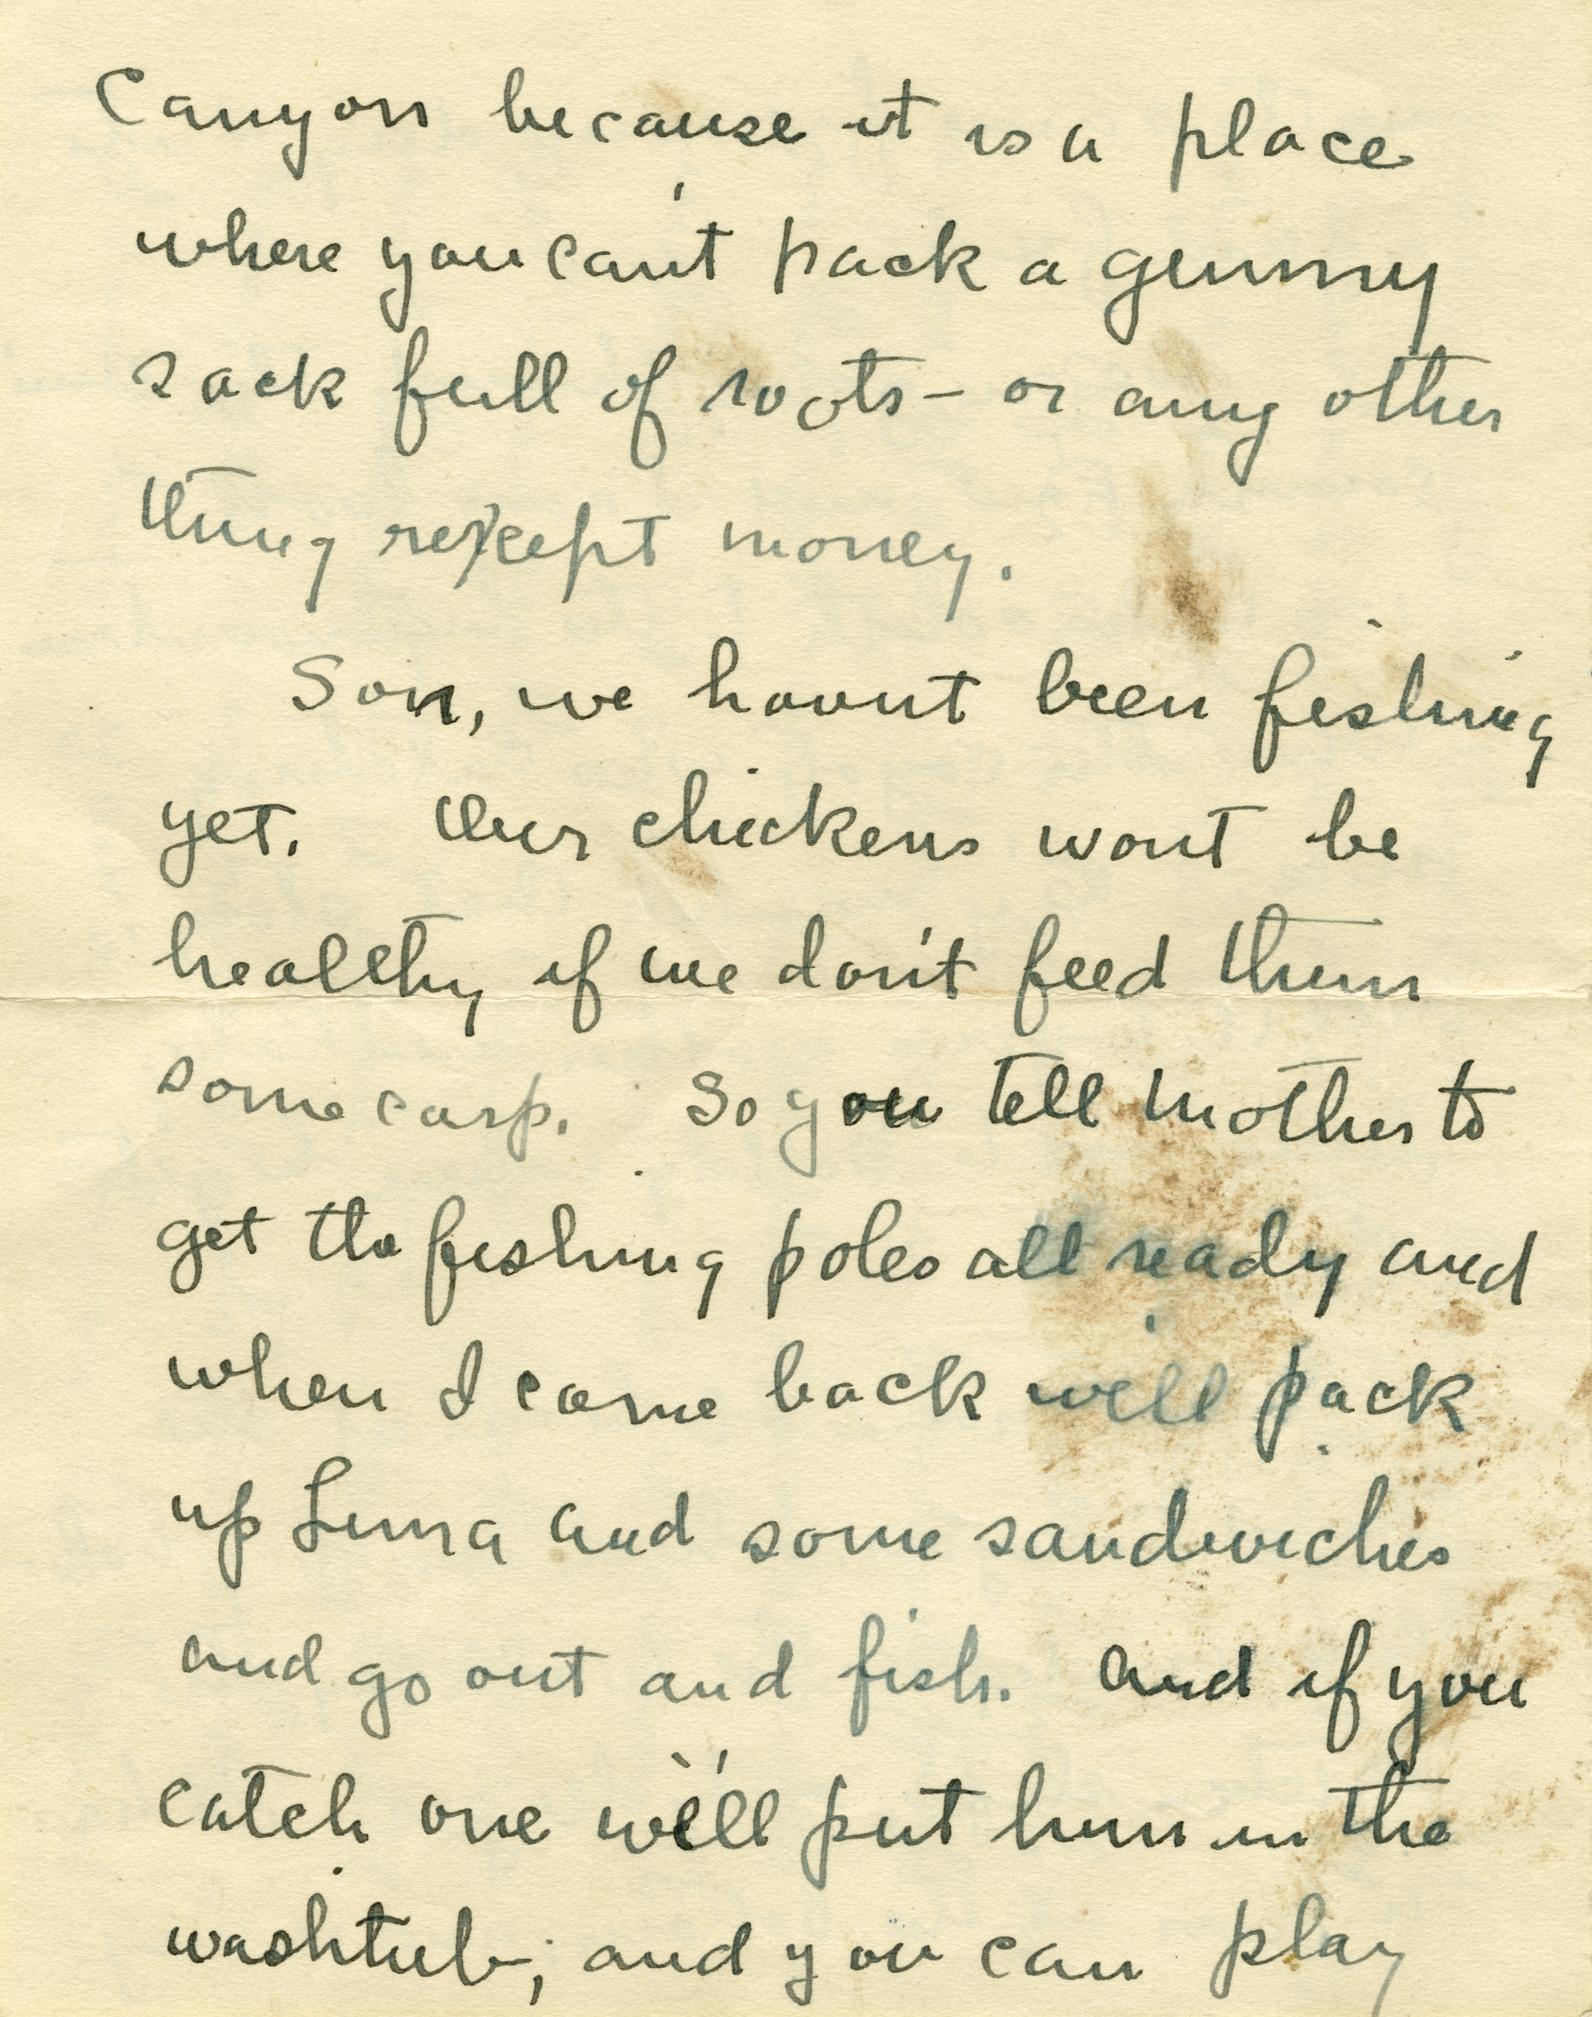 Canyon because it is a place
where you can't pack a gunny
sack full of roots - or any other
thing rexcept money.
Son, we havnt been fishing
yet. Our chickens wont be
healthy if we don't feed them
some carp. So you tell Mother to
get the fishing poles all ready and
when I come back will pack
up Luna and some sandwiches
and go out and fish. And if you
catch one we'll put him in the
washtub, and you can play